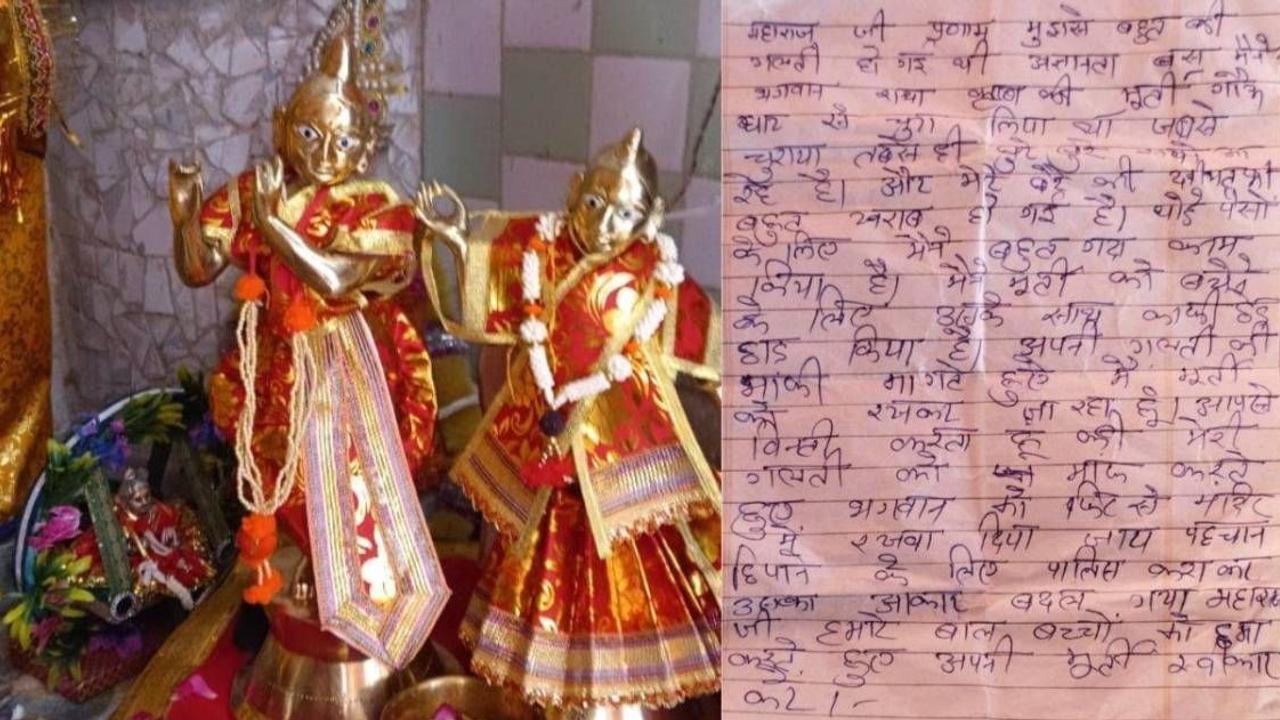 महाराज जी प्रणाम मुझसे बहुत बड़ी
गलती हो गई थी अज्ञानता बस मैने
भगवान राधा कृष्ण की मूर्ती गौऊ
घाट से चुरा लिया था जबसे
चुराया तबसे ही बुरे बुरे
रहे है। और मेरे बेटे की तबीयत भी
बहुत खराब हो गई है। थोडे पैसो
के लिए मैने बहुत गंदा काम
किया है। मैने मूर्ती को बेचने
के लिए उसके साथ काफी छेडृ
छाड किया है। अपनी गलती की
माफी मागते हुए मैं मूर्ती
को रखकर जा रहा हूँ। आपसे
विनती करता हूँ की मेरी
गलती को माफ करते
हुए भगवान को फिर से मंदिर
में रखवा दिया जाय पहचान
छिपाने के लिए पालिस कराकर
उसका आकार बदल गया महाराज
जी हमारे बाल बच्चों को क्षमा
करते हुए अपनी मूर्ती स्वीकार
करे।-